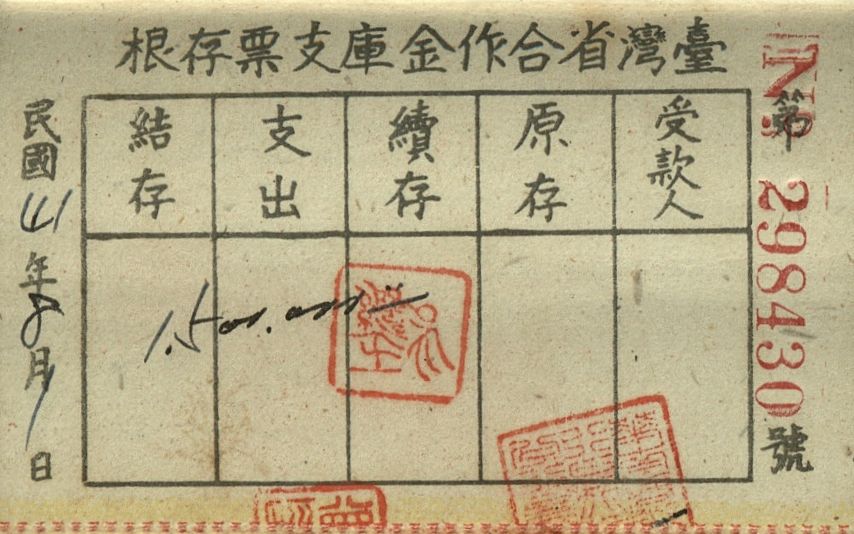 臺灣省合作金庫支票存根
第 No 298430 號
受款人
原存
續存
支出
結存
1.500.000
民國41年8月1日